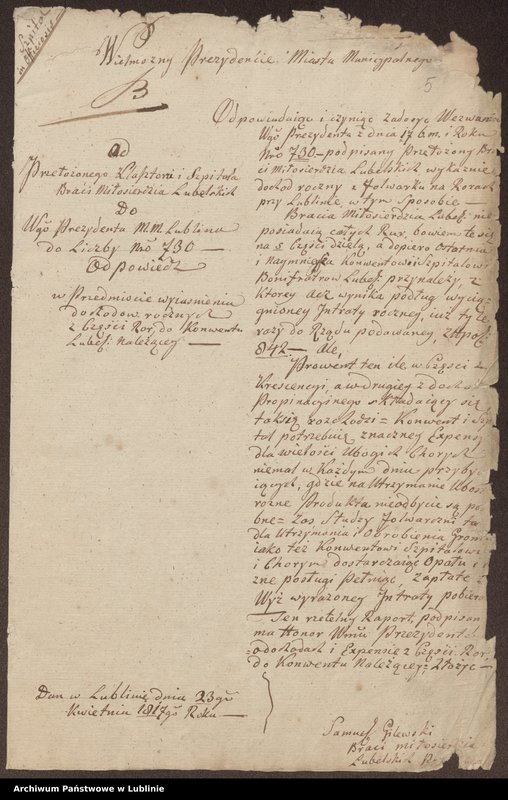 Szpital
Wielmożny Prezydencie Miasta Municypalnego
5
Odpowiadając i czyniąc zadosyć Wezwaniu
Wgo Prezydenta z dnia 17 b.m. i Roku
Nro 730 podpisany Przełożony Bra
ci Miłosierdzia Lubelskich wykaznie
dochod roczny z Folwarku na Rorach
przy Lublinie w tym Sposobie —
Bracia Miłosierdzia Lubels. nie
posiadaią całych Rur, bowiem te się
na 5 Części dzielą, a dopiero Ostatnia
i naymnieysza konwentowi i Szpitalowi
Bonifratrow Lubels. przynależy, z
ktorey acz wynika podług wycią-
gnioney Intraty roczney, iuż tyle
razy do Rządu podawaney, Złłpols.
842 — Ale,
Prowent ten ile w Części z
Krescencyi, a w drugiey z docho
Propinacyinego składaiący się
tak się rozchodzi = Konwent i Szpi
tal potrzebuie znaczney Expensy
dla wielości Ubogich Chorych
niemal w Każdym dniu przyby
iących, gdzie na Utrzymanie Ubos
rożne Produkta nieodbicie są po
bne = Zas Studzy folwarczni ta
dla Utrzymania i Obrobienia Gron
iako też Konwentowi Szpitalowi
i Chorym dostarczaiąc Opału i
zne posługi Pełniąc, zapłatę z
Wyż wyrażoney Intraty pobiera
Ten rzetelny Raport, podpisan
ma Honor Wmu Prezydent
o dochodach i Expensie z Części Ror,
do Konwentu Należącey = Złożyć —
Od
Przełożonego Klasztoru i Szpitala
Braci Miłosierdzia Lubelskich
Do
Wgo Prezydenta M.M. Lublina
do Liczby Nro 730 —
Odpowiedź
w Przedmiocie wyiasnienia
dochodow rocznych
z Części Ror, do Konwentu
Lubels. Należącey —
Dan w Lublinie dnia 23go
Kwietnia 1817go Roku —
Samuel Gilewski
Braci miłosierdzia
Lubelskich
Archiwum Państwowe w Lublinie